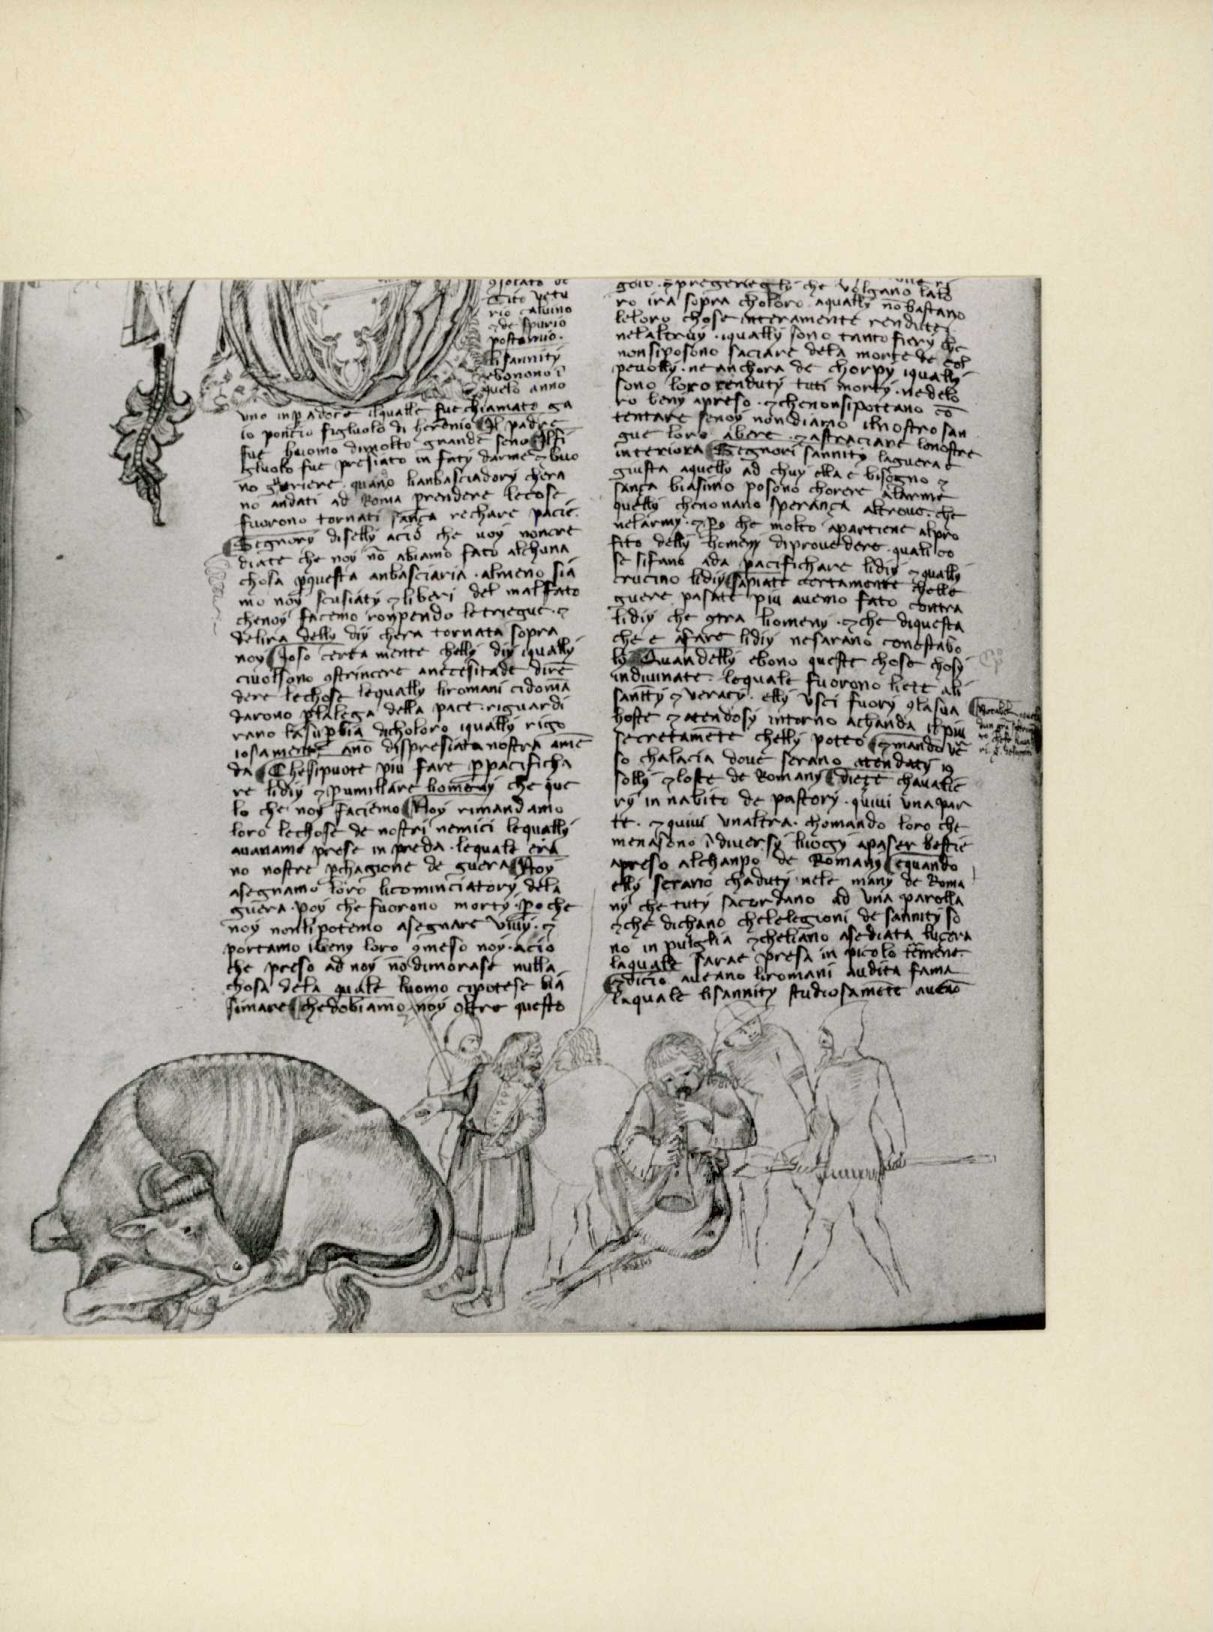 Tito vetu
rio caluino
⁊ de spurio
postumio.
li sannity
ebonono ī
queło anno
uno inpadore ilqualle fue chiamato ga
io pontio figluolo di herenio Il padre
fue huomo dimolto grande seno Il fi
gluolo fue presiato in faty darme ⁊ buo
no guriere. quāno lianbasciadory chera
no andati ad Roma prendere le cose
fuorono tornati sança rechare pacie.
Segnory diselly acio che uoy noncre
diate che noy nō abiamo fato alchuna
chosa pquesta anbasciaria. almeno siā
mo noy scusiaty ⁊ liberi del malfato
chenoy facemo ronpendo le triegue. ⁊
delira delly diy chera tornata sopra
noy Io so certa mente chelly diy iqually
ciuolsono ꝯstrincere anecesitade direē
dere le chose lequally li romani cidomā
darono plalega della pace. riguardi
rano la supbia dicholoro iqually rigo
iosamente ano dispresiata nostra ame
da Che si puote piu fare p pacificha
re lidiy ⁊ pumiliare li omeny che que
lo che noy facemo Noy rimandamo
loro le chose de nostri nemici lequally
auauamo prese in preda. lequale era
no nostre pchagione de guera Noy
asegnamo loro licominciatory dela
guera. poy che fuorono morty. po che
noy nonlipotemo asegnare viuy. ⁊
portamo ibeny loro ꝯmeso noy. acio
che preso ad noy nō dimorase nulla
chosa dela quale luomo cipotese bia
simare che dobiamo noy oltre questo
ro ira sopra choloro. aqually nō bastano
leloro chose interamente rendute.
nelaltruy. iqually sono tanto fiery che
non siposono saciare dela morte de col
peuolly. ne anchora de chorpy iqually
sono loro renduty tuti morty. ne delo
ro beny apreso. ⁊ chenonsipoteano cō
tentare senoy nondiamo ilnostro san
gue loro abere. ⁊ astraciare lenostre
interiora Segnori sannity laguera e
giusta aquelly ad chuy ella e bisogno ⁊
sança biasimo posono chorere alarme
quelly chenonano sperança altroue. che
nelarmy. ⁊ Po che molto apartiene alpro
fito delly homeny diprouedere. quali co
se sifano ada pacifichare lidiy ⁊ qually
crucino lidiy sapiate certamente chelle
guere pasate piu auemo fato contra
lidiy che ꝯtra liomeny. ⁊ che diquesta
che e afare lidiy nesarano conestabo
ly Quandelly ebono queste chose chosy
indiuinate. lequale fuorono liete ali
sanity ⁊ veracy. elly vsci fuory ꝯ la sua
hoste ⁊ atendosy intorno achanda il piu
secretamete chelly poteo ⁊ mando ve
so chalacia doue serano atendaty ꝯ
solly ⁊ loste de Romany Diece chaualie
ry in nabito de pastory. quiui vna par
te. ⁊ quiui vnaltra. chomando loro che
menaseno ī diuersy luogy apaser bestie
apreso alchanpo de Romany equando
elly serano chaduty nele many de Roma
ny che tuty sacordano ad vna parolla
⁊ che dichano chelelegioni de sannity so
no in puglia ⁊ cheliano asediata lucera
laquale sarae presa in picolo termene.
⁊ dicio aueano li romani audita fama
laquale lisannity studiosamete aueāo